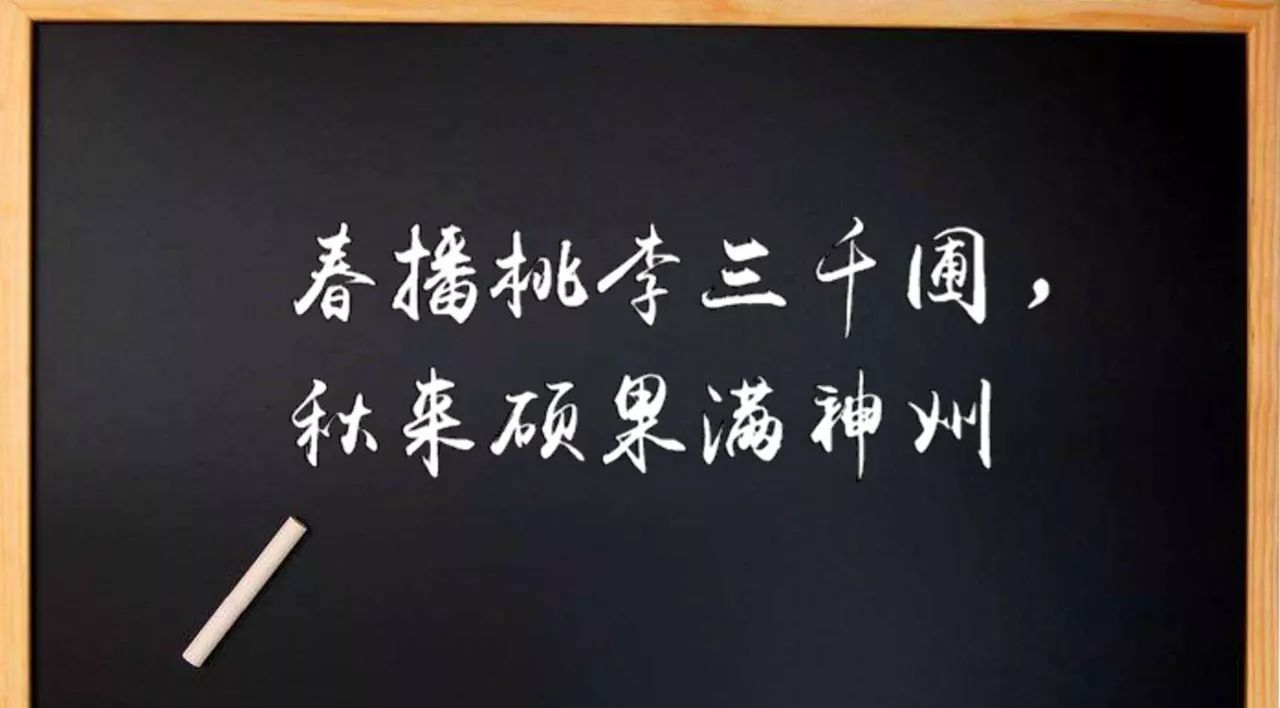 春播桃李三千圃，
秋来硕果满神州